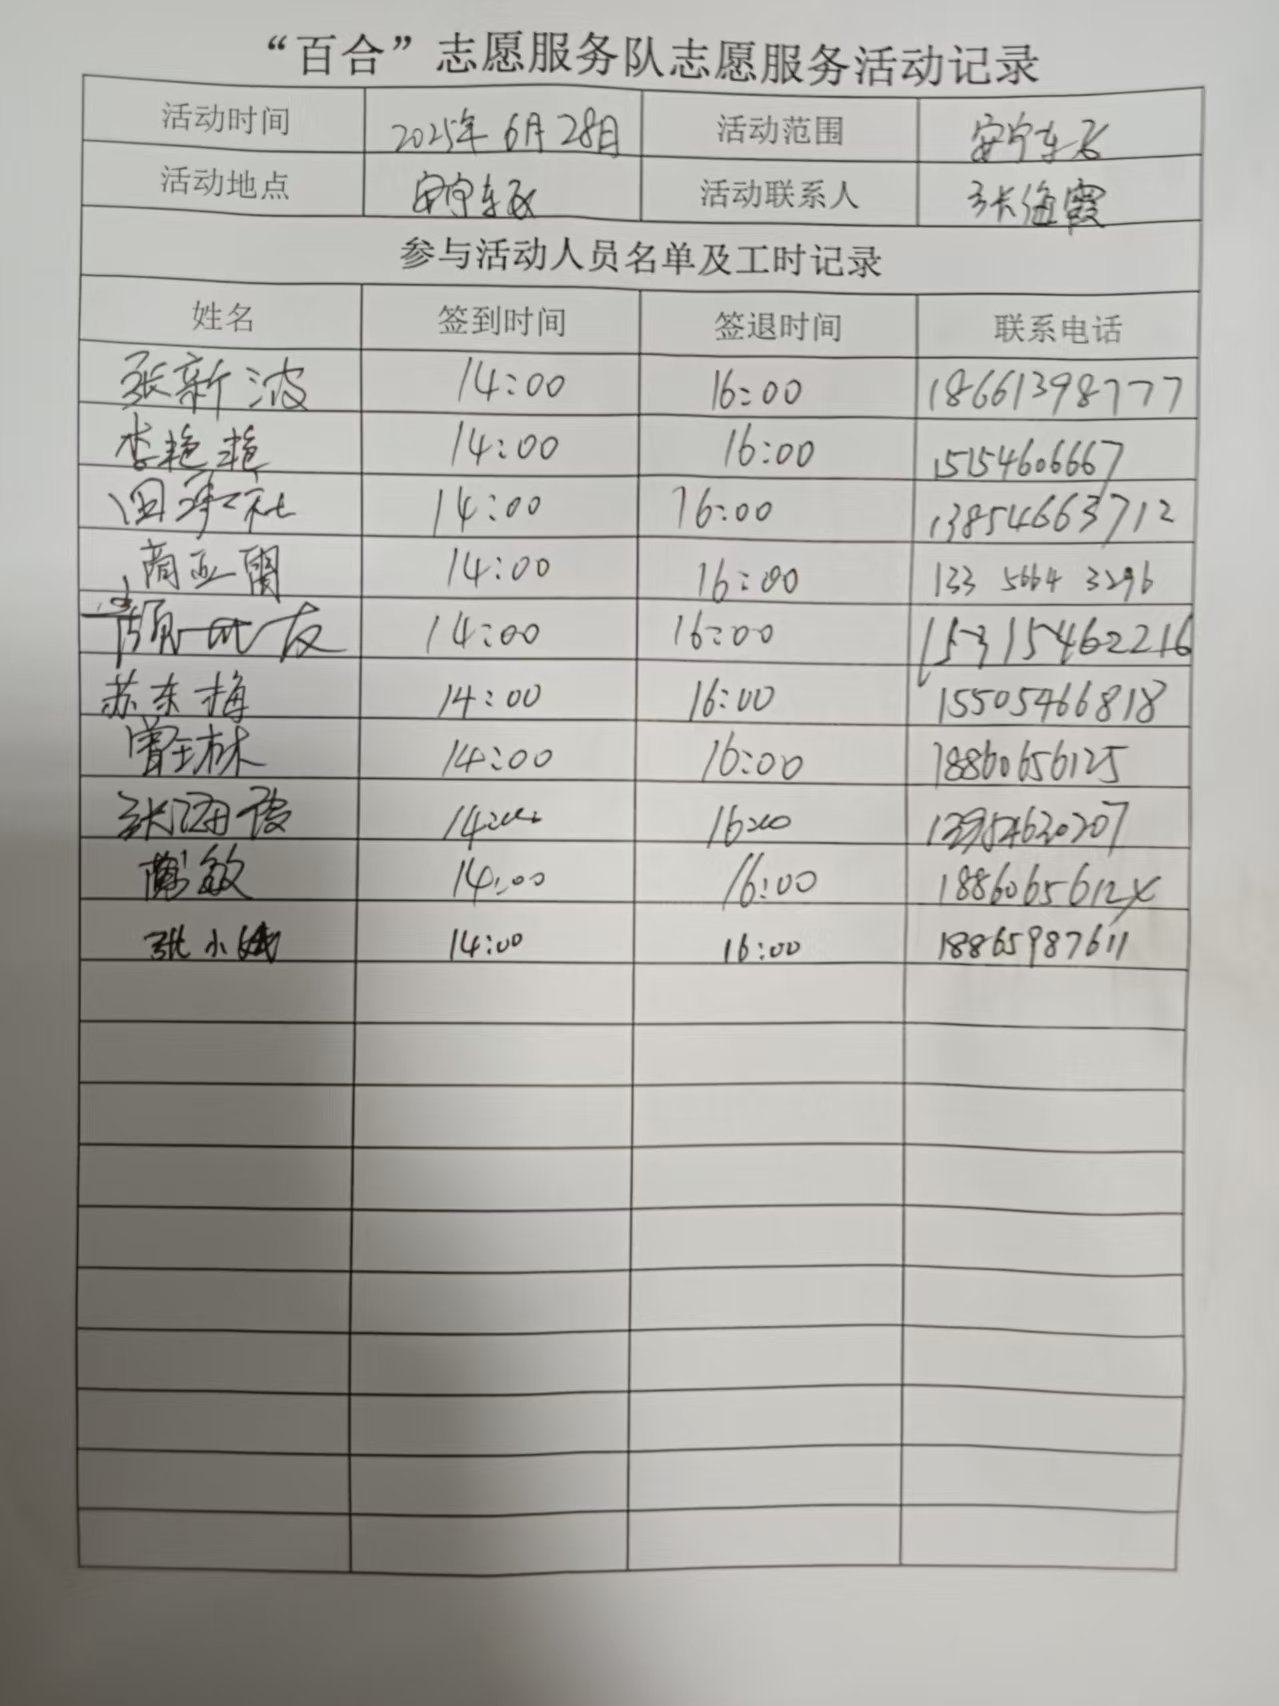 “百合”志愿服务队志愿服务活动记录
活动时间 2025年6月28日 活动范围 安宁东区
活动地点 安宁东区 活动联系人 张海霞
参与活动人员名单及工时记录
姓名 签到时间 签退时间 联系电话
张新波 14:00 16:00 18661398777
李艳艳 14:00 16:00 15154606667
田承社 14:00 16:00 13854663712
商亚 14:00 16:00 133 5664 3296
友 14:00 16:00 15315462216
苏东梅 14:00 16:00 15505466818
曾玉林 14:00 16:00 18860656125
张海霞 14:00 16:00
敏 14:00 16:00
张小 14:00 16:00 18865987611